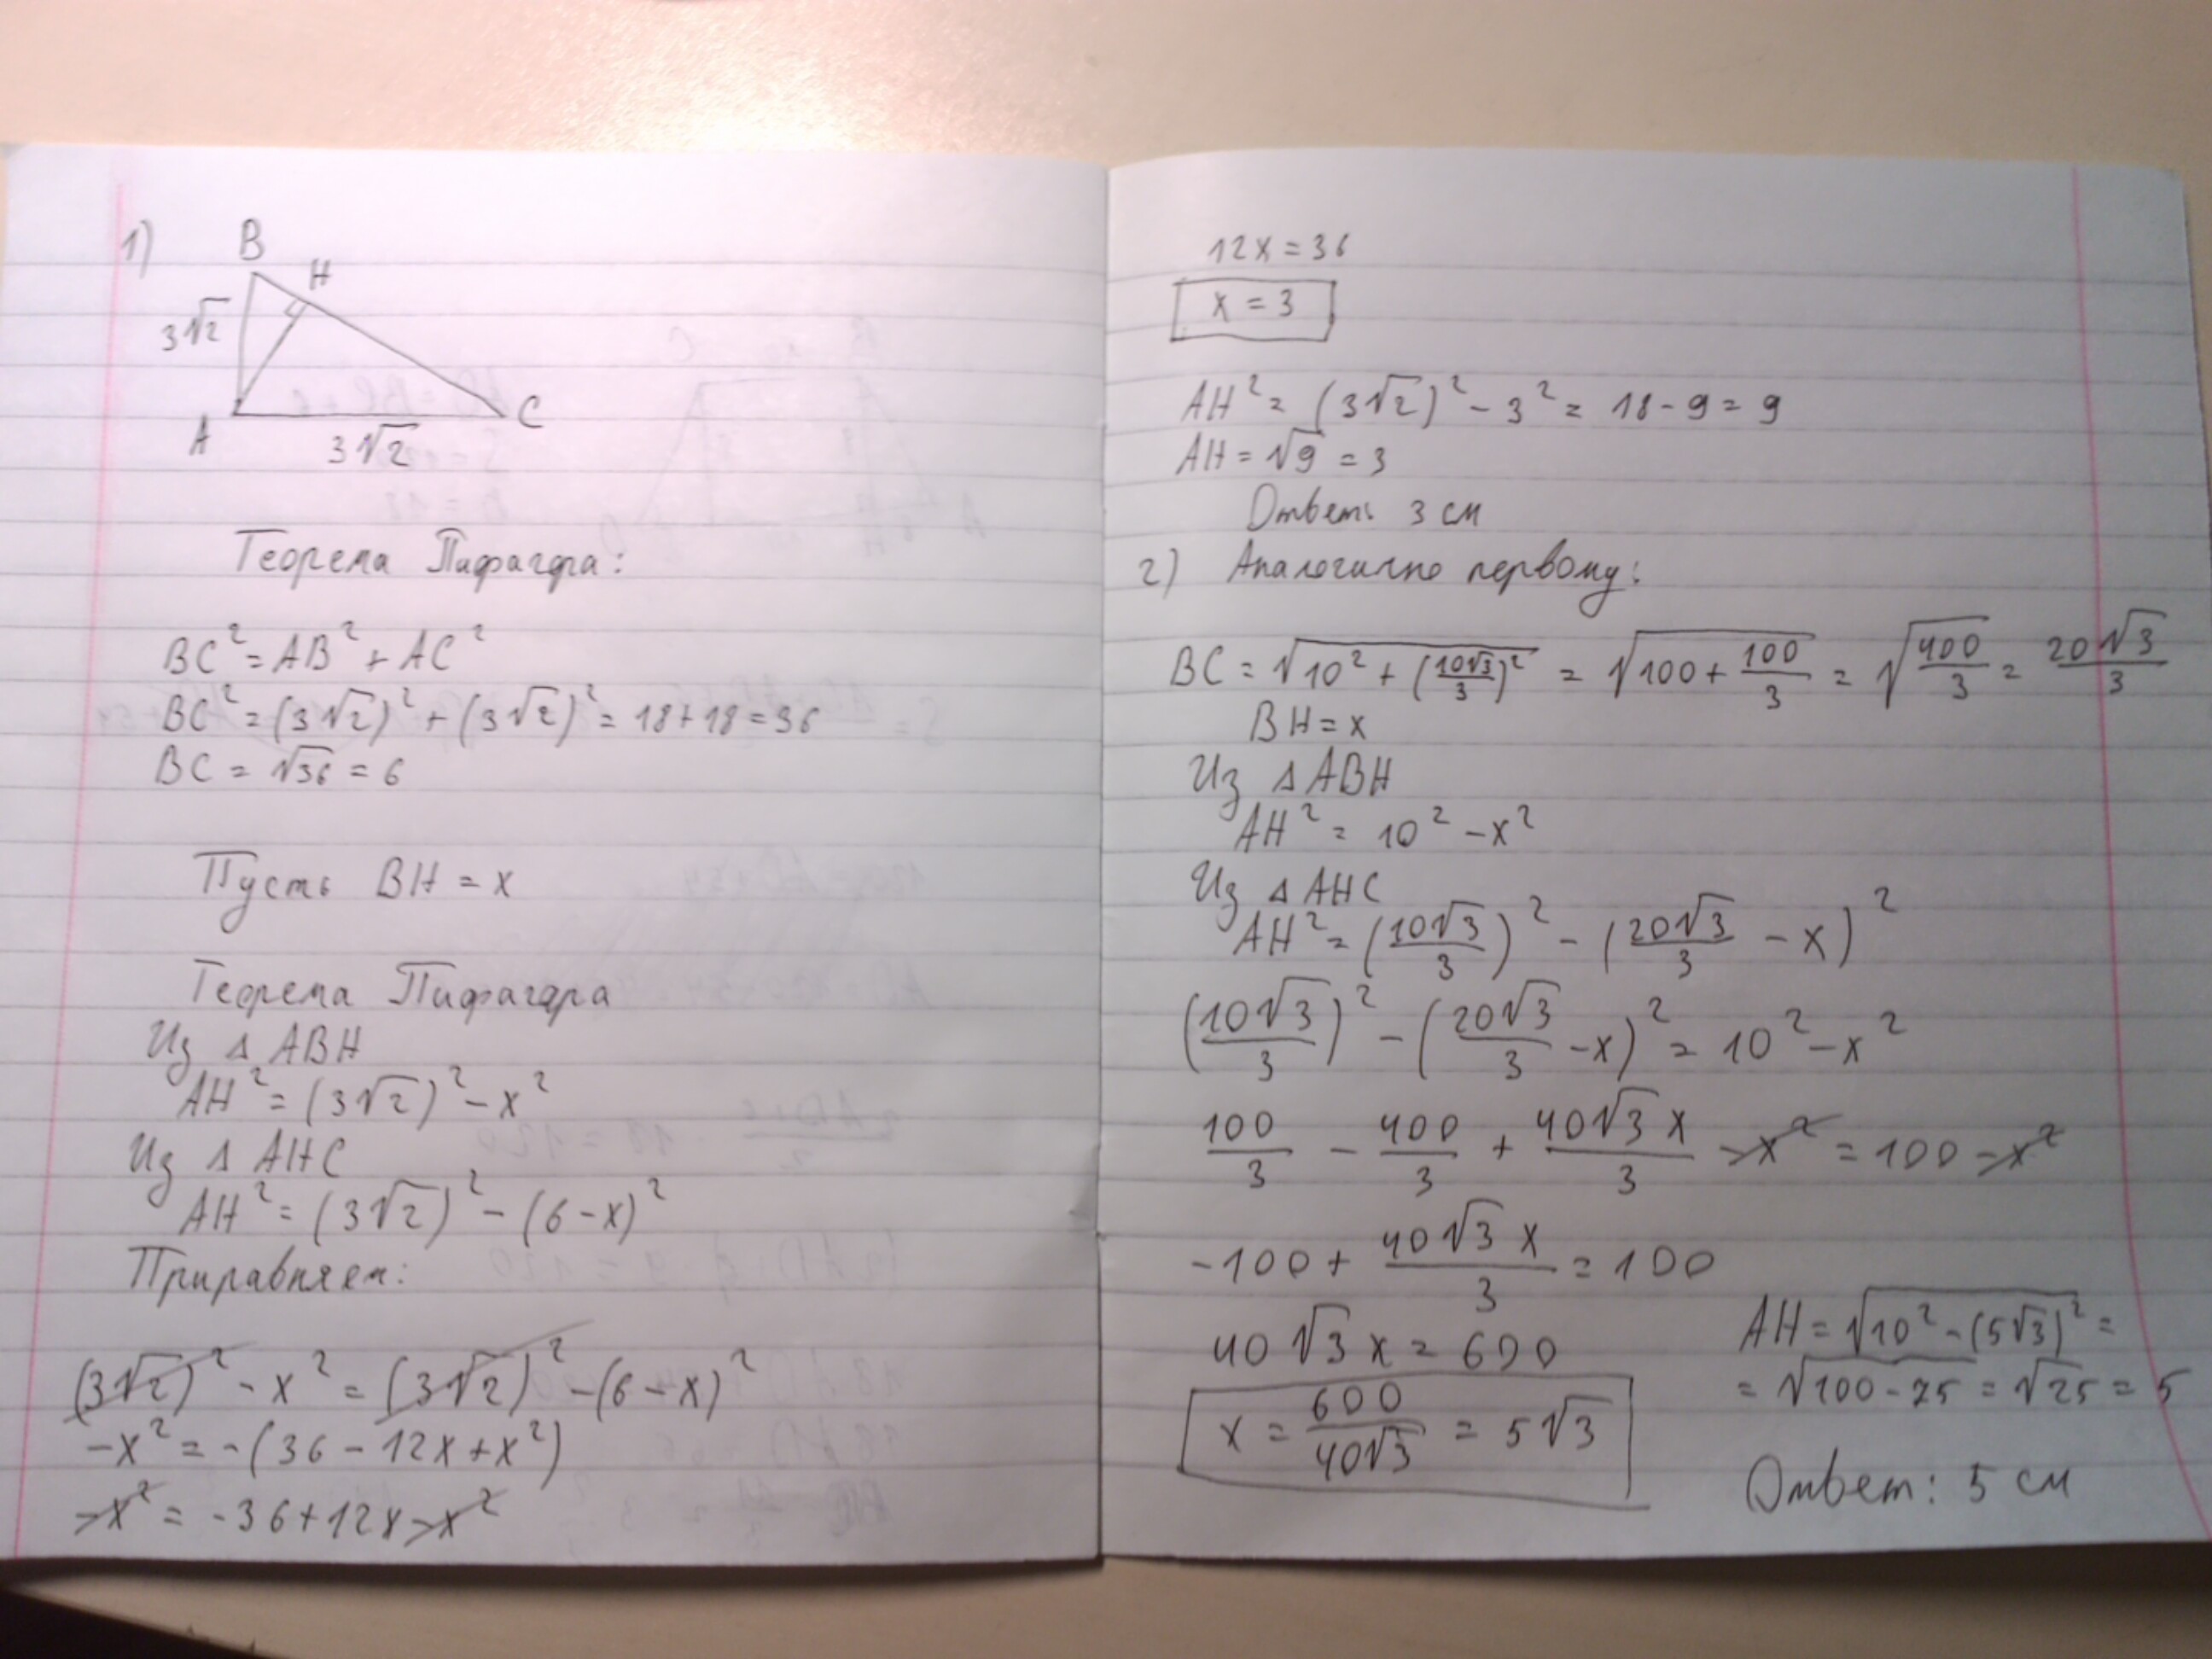 1)
B
H
3√2
A
C
3√2
Теорема Пифагора:
BC² = AB² + AC²
BC² = (3√2)² + (3√2)² = 18 + 18 = 36
BC = √36 = 6
Пусть BH = x
Теорема Пифагора
Из Δ ABH
AH² = (3√2)² - x²
Из Δ AHC
AH² = (3√2)² - (6 - x)²
Приравняем:
(3√2)² - x² = (3√2)² - (6 - x)²
-x² = -(36 - 12x + x²)
-x² = -36 + 12x - x²
12x = 36
x = 3
AH² = (3√2)² - 3² = 18 - 9 = 9
AH = √9 = 3
Ответ: 3 см
2) Аналогично первому:
BC = √(10² + (10√3/3)²) = √(100 + 100/3) = √(400/3) = 20√3/3
BH = x
Из Δ ABH
AH² = 10² - x²
Из Δ AHC
AH² = (10√3/3)² - (20√3/3 - x)²
(10√3/3)² - (20√3/3 - x)² = 10² - x²
100/3 - 400/3 + 40√3x/3 - x² = 100 - x²
-100 + 40√3x/3 = 100
40√3x = 600
x = 600/40√3 = 5√3
AH = √(10² - (5√3)²) =
= √(100 - 75) = √25 = 5
Ответ: 5 см